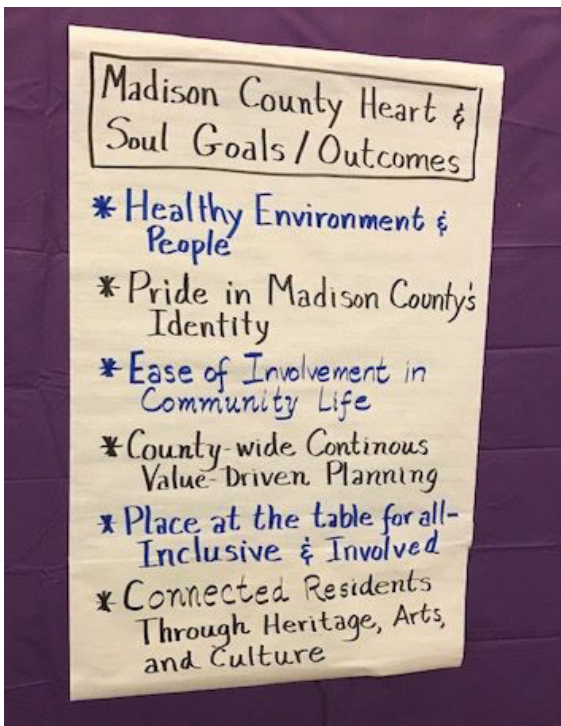 Madison County Heart &
Soul Goals/Outcomes
* Healthy Environment &
People
* Pride in Madison County's
Identity
* Ease of Involvement in
Community Life
* County-wide Continous
Value-Driven Planning
* Place at the table for all-
Inclusive & Involved
* Connected Residents
Through Heritage, Arts,
and Culture